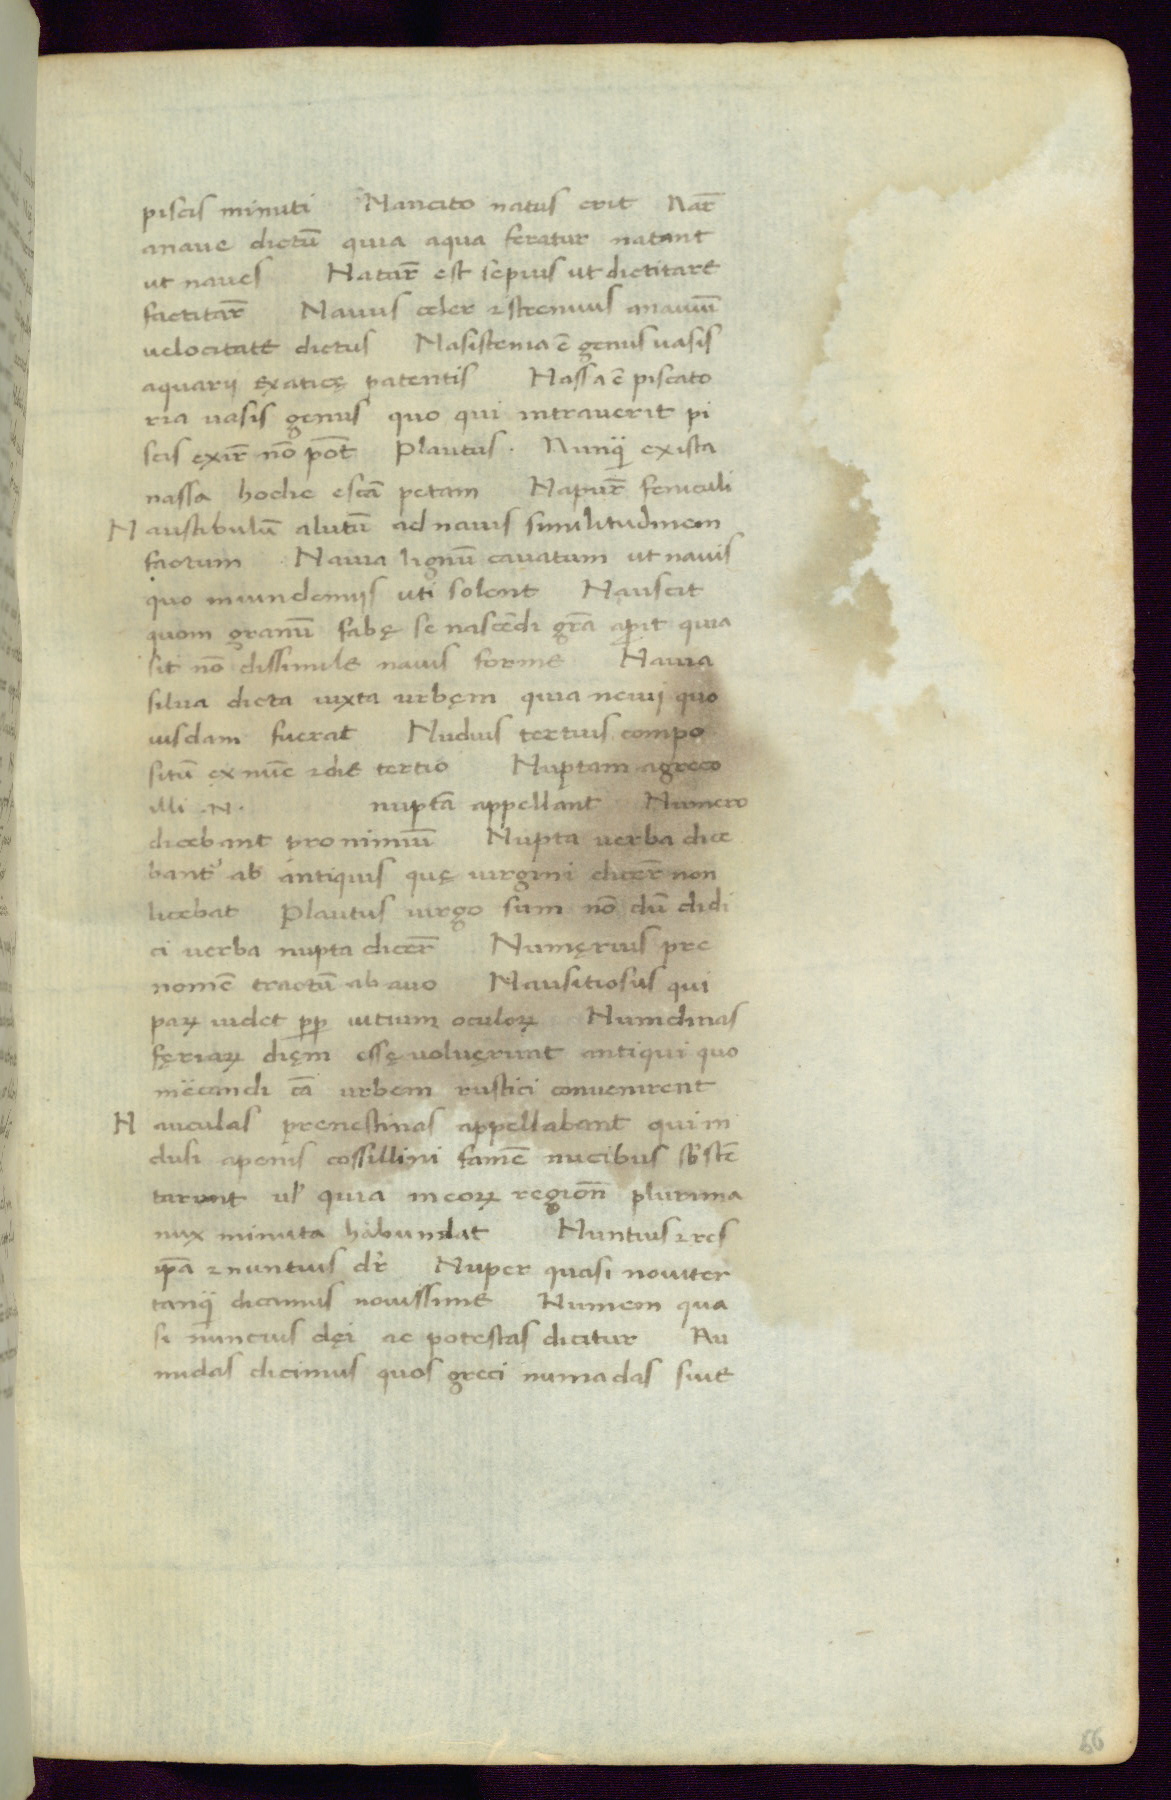 piscis minuti Nancito natus erit Nar̄
anaue dictū quia aqua feratur natant
ut naues Natar̄ est sepius ut dictitare
factitar̄ Nauus celer ⁊ strenuus anauiū
uelocitate dictus Nasiterna ē genus uasis
aquarij ex aticę patentis Nassa ē piscato
ria uasis genus quo qui intrauerit pi
scis exir̄ nō pōt Plautus . Nunq̄ exista
nassa hodie escā petam Napur̄ feniculi
Naustibulū alutū ad nauis similitudinem
factum Nauia lignū cauatum ut nauis
quo in uindemijs uti solent Nauscit
quom granū fabę se nascēdi gr̄a aperit quia
sit nō dissimile nauis forme Nauia
silua dicta iuxta urbęm quia neuij quo
iusdam fuerat Nudius tertius compo
sitū ex nūc ⁊ die tertio Nuptam agreco
illi .N. nuptā appellant Numero
dicebant pro nimiū Nupta uerba dice
bant᷑ ab antiquis quę uirgini dicer̄ non
licebat Plautus uirgo sum nō dū didi
ci uerba nupta dicer̄ Numęrius pre
nomē tractū ab auo Nausitiosus qui
parꝝ uidet pp̄ uitium oculoꝝ Nundinas
fęriaꝝ dięm essę uoluęrunt antiqui quo
m̄candi cā urbem rustici conuenirent
Nuculas prenestinas appellabant qui in
clusi apenis cossillini famē nucibus sb̄stē
tarunt ul' quia in eoꝝ regiōn plurima
nux minuta habundat Nuntius ⁊ res
ip̄a ⁊ nuntius dr̄ Nuper quasi nouiter
tanq̄ dicamus nouissime Numem qua
si nuncius dęi ac potestas dicitur Nu
midas dicimus quos greci numadas siue
56